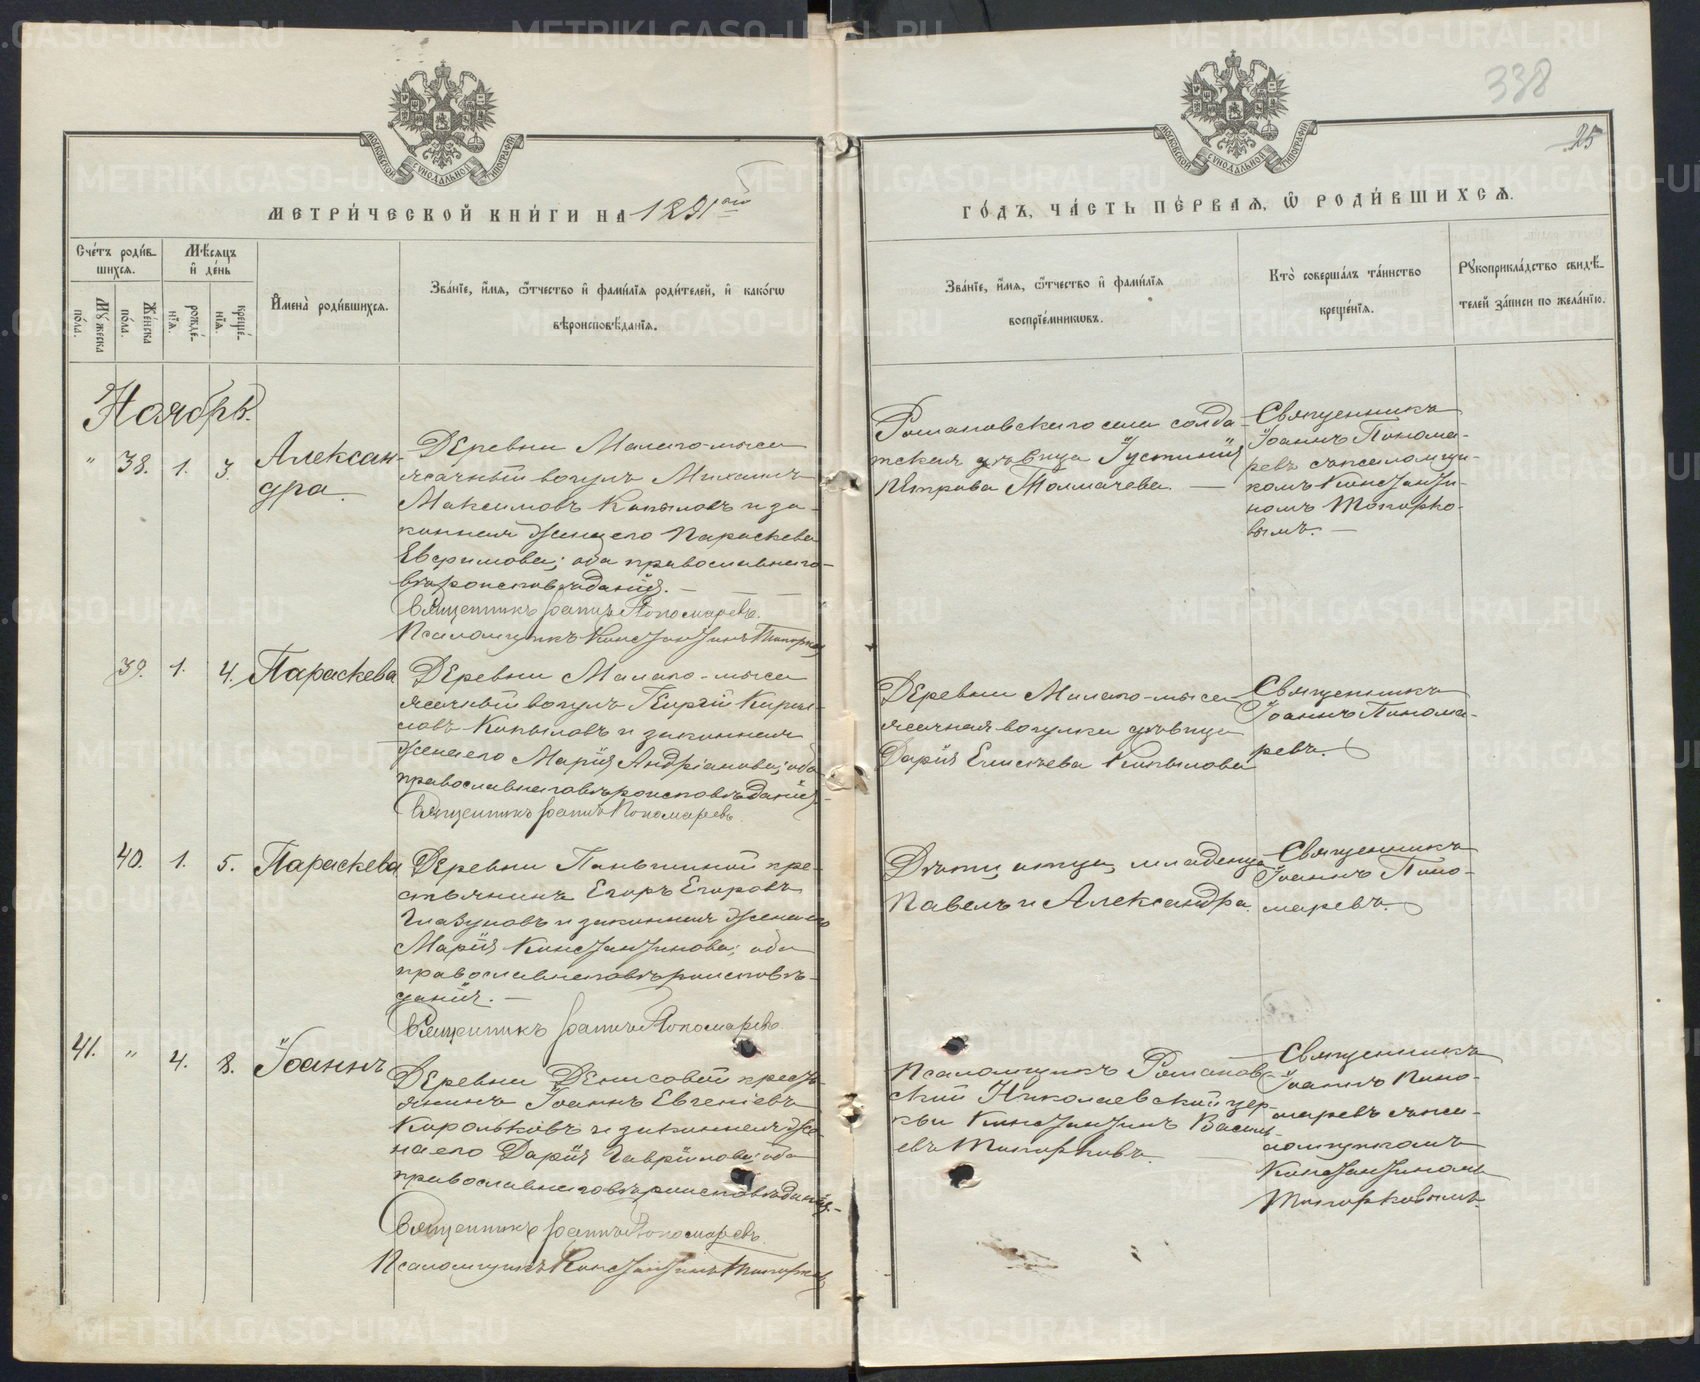 338
25
МОСКОВСКОЙ СѴНОДАЛЬНОЙ ТИПОГРАФІИ
МОСКОВСКОЙ СѴНОДАЛЬНОЙ ТИПОГРАФІИ
МЕТРИ́ЧЕСКОЙ КНИ́ГИ НА 1891 ой
ГО́ДЪ, ЧА́СТЬ ПЕ́РВАѦ, Ѿ РОДИ́ВШИХСѦ.
Сче́тъ роди́в-
шихсѧ.
Мѣ́сѧцъ
и҆ де́нь
Му́жеска
по́ла.
Же́нска
по́ла.
рожде́-
нїѧ.
креще́-
нїѧ.
И҆мена̀ роди́вшихсѧ.
Зва́нїе, и҆́мѧ, ѻ҆́тчество и҆ фами́лїѧ роди́телей, и҆ како́гѡ
вѣроисповѣ́данїѧ.
Зва́нїе, и҆́мѧ, ѻ҆́тчество и҆ фами́лїѧ
воспрїе́мникѡвъ.
Кто̀ соверша́лъ та́инство
креще́нїѧ.
Рꙋкоприкла́дство свидѣ́-
телей за́писи по жела́нїю.
Ноябрь.
" 38. 1. 3. Алексан-
дра.
Деревни Малаго-мыса
ясачный вогулъ Михаилъ
Максимовъ Копыловъ и за-
конная жена его Параскева
Евфимова; оба православнаго
вѣроисповѣданія. —
Священникъ Іоаннъ Пономаревъ.
Псаломщикъ Константинъ Топорков
Романовскаго села солда-
тская дѣвица Іустинія
Петрова Толмачева. —
Священникъ
Іоаннъ Понома-
ревъ съ псаломщи-
комъ Константи-
номъ Топорко-
вымъ. —
39. 1. 4. Параскева
Деревни Малаго-мыса
ясачный вогулъ Георгій Кирил-
ловъ Копыловъ и законная
жена его Марія Андріанова; оба
православнаго вѣроисповѣданія.
Священникъ Іоаннъ Пономаревъ.
Деревни Малаго-мыса
ясачная вогулка дѣвица
Дарія Елисѣева Копылова
Священникъ
Іоаннъ Понома-
ревъ.
40. 1. 5. Параскева
Деревни Паньшиной кре-
стьянинъ Егоръ Егоровъ
Глазуновъ и законная жена его
Марія Константинова; оба
православнаго вѣроисповѣ-
данія. —
Священникъ Іоаннъ Пономаревъ.
Дѣти отца младенца
Павелъ и Александра.
Священникъ
Іоаннъ Поно-
маревъ.
41. " 4. 8. Іоаннъ
Деревни Денисовой крестъ-
янинъ Іоаннъ Евгеніевъ
Корольковъ и законная же-
на его Дарія Гавріилова; оба
православнаго вѣроисповѣданія. —
Священникъ Іоаннъ Пономаревъ.
Псаломщикъ Константинъ Топорков
Псаломщикъ Романов-
ской Николаевской цер-
кви Константинъ Василь-
евъ Топорковъ.
Священникъ
Іоаннъ Поно-
маревъ съ пса-
ломщикомъ
Константиномъ
Топорковымъ.
METRIKI.GASO-URAL.RU